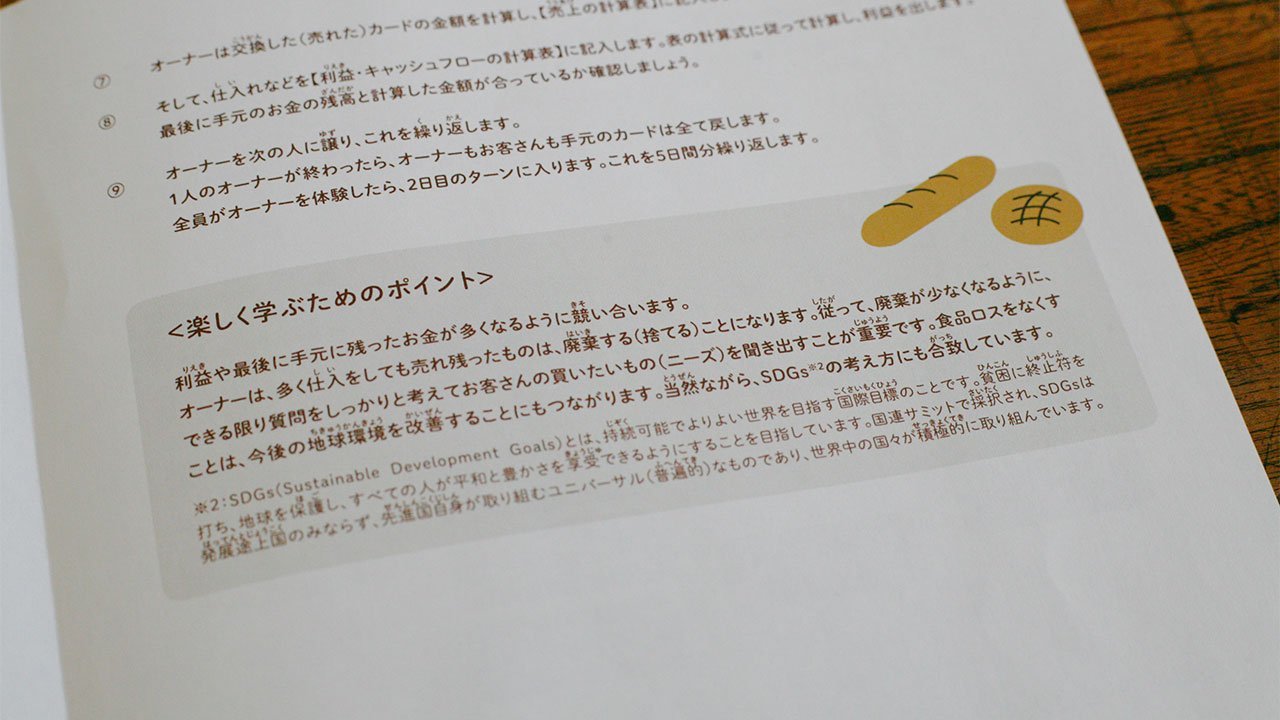 オーナーは交換した(売れた)カードの金額を計算し、【売上の計算表】に記入し
⑦ そして、仕入れなどを【利益・キャッシュフローの計算表】に記入します。表の計算式に従って計算し、利益を出します。
⑧ 最後に手元のお金の残高と計算した金額が合っているか確認しましょう。
オーナーを次の人に譲り、これを繰り返します。
⑨ 1人のオーナーが終わったら、オーナーもお客さんも手元のカードは全て戻します。
全員がオーナーを体験したら、2日目のターンに入ります。これを5日間分繰り返します。
<楽しく学ぶためのポイント>
利益や最後に手元に残ったお金が多くなるように競い合います。
オーナーは、多く仕入をしても売れ残ったものは、廃棄する(捨てる)ことになります。従って、廃棄が少なくなるように、
できる限り質問をしっかりと考えてお客さんの買いたいもの(ニーズ)を聞き出すことが重要です。食品ロスをなくす
ことは、今後の地球環境を改善することにもつながります。当然ながら、SDGs※2の考え方にも合致しています。
※2:SDGs(Sustainable Development Goals)とは、持続可能でよりよい世界を目指す国際目標のことです。貧困に終止符を
打ち、地球を保護し、すべての人が平和と豊かさを享受できるようにすることを目指しています。国連サミットで採択され、SDGsは
発展途上国のみならず、先進国自身が取り組むユニバーサル(普遍的)なものであり、世界中の国々が積極的に取り組んでいます。